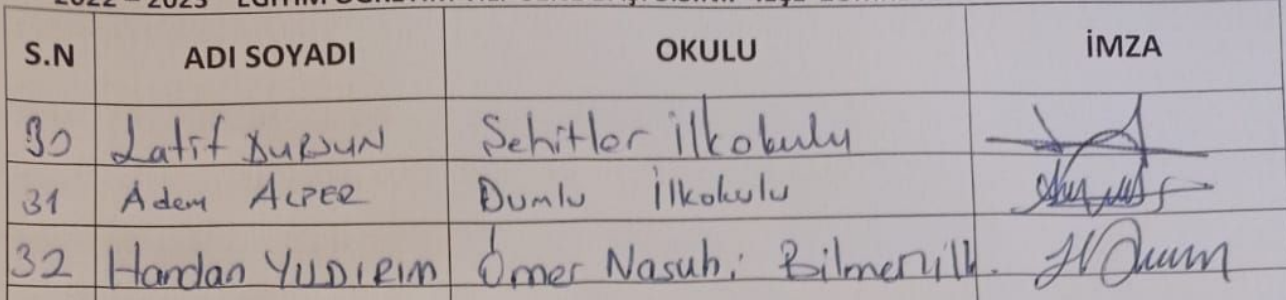 2022 – 2023 EĞİTİM ÖĞRETİM YILI
S.N ADI SOYADI OKULU İMZA
30 Latif DURSUN Şehitler İlkokulu
31 Adem ALPER Dumlu İlkokulu
32 Handan YILDIRIM Ömer Nasuhi Bilmen ilk.